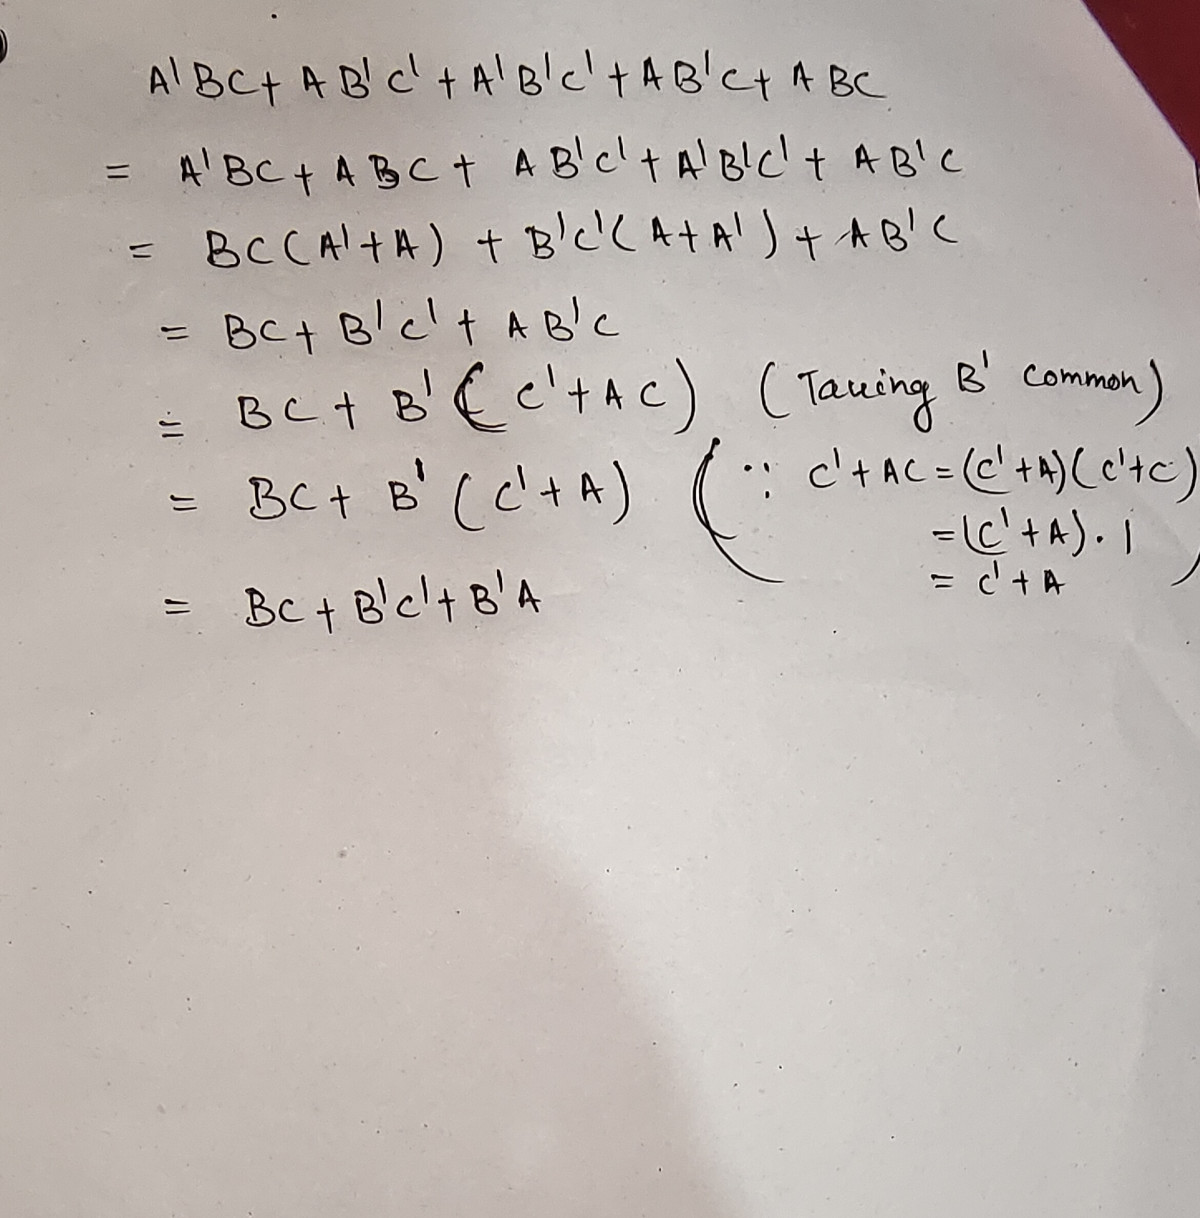 A'BC + AB'C' + A'B'C' + AB'C + ABC
= A'BC + ABC + AB'C' + A'B'C' + AB'C
= BC(A'+A) + B'C'(A+A') + AB'C
= BC + B'C' + AB'C
= BC + B'(C'+AC) (Taking B' common)
= BC + B'(C'+A) (∵ C'+AC = (C'+A)(C'+C)
= (C'+A).1
= C'+A)
= BC + B'C' + B'A